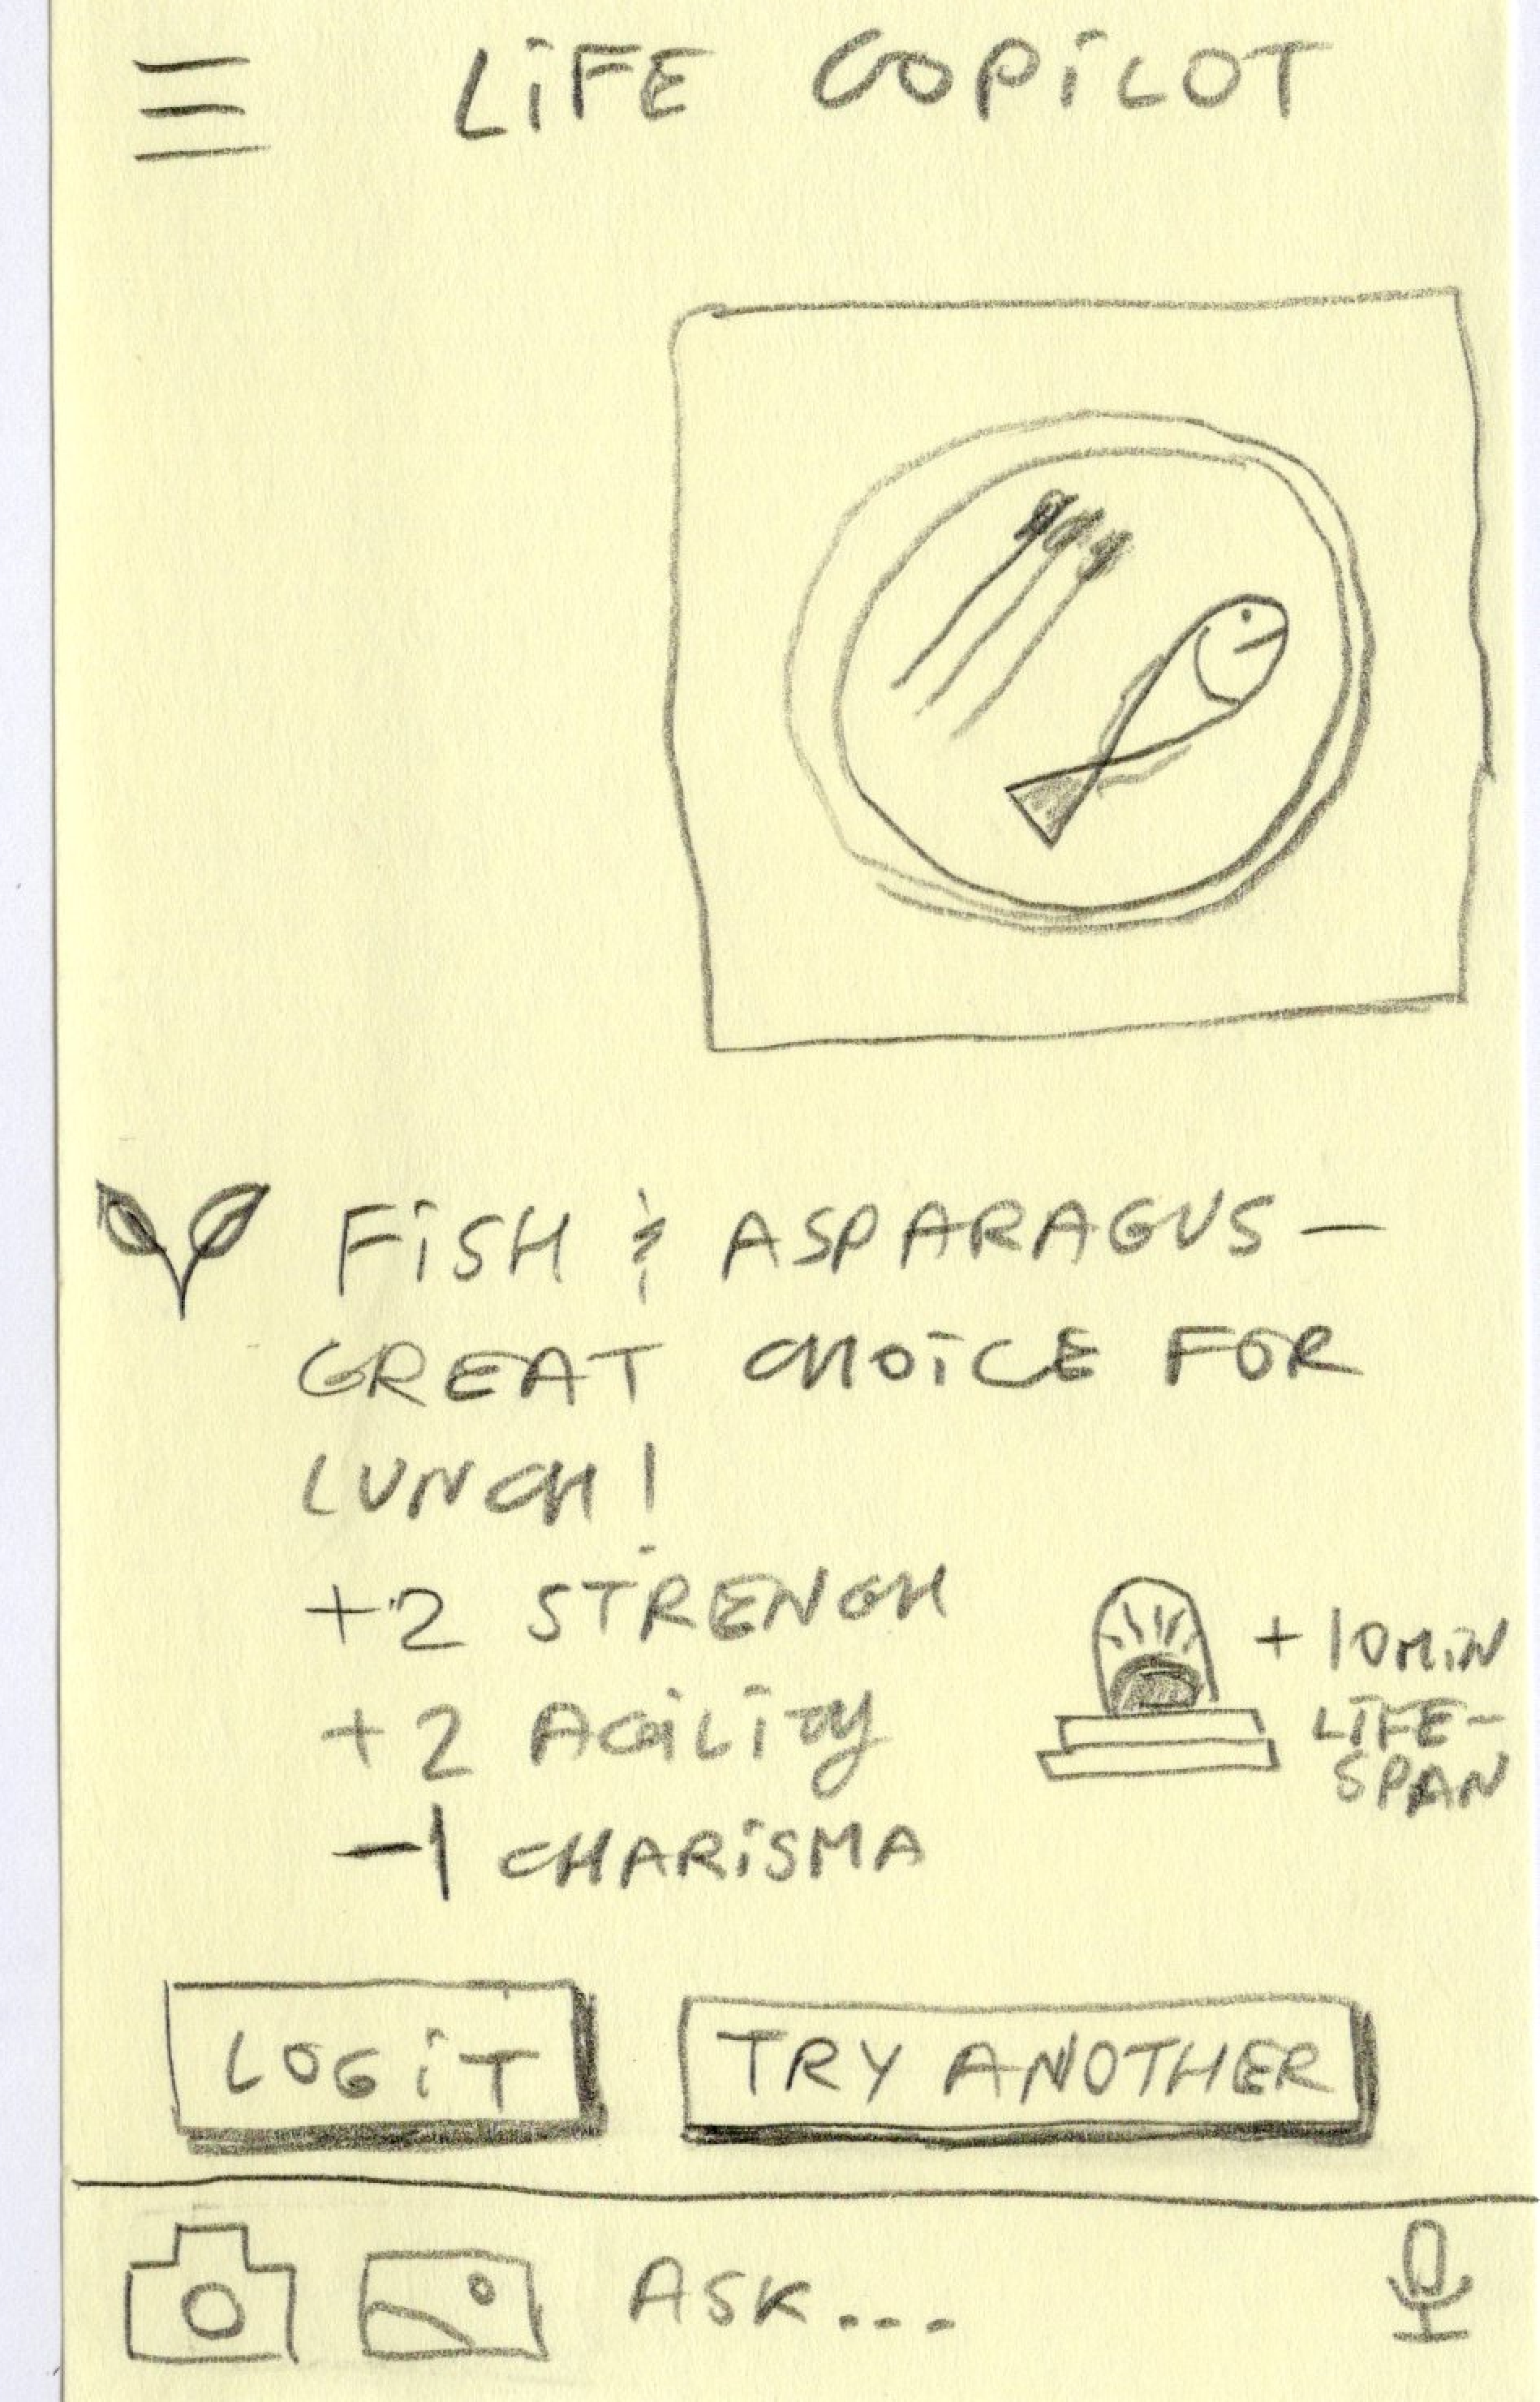 LiFE COPiLOT
FiSH & ASPARAGUS—
GREAT CHOiCE FOR
LUNCH!
+2 STRENGH
+2 AGiLiTy
-1 CHARiSMA
+10 MiN
LIFE-
SPAN
LOG iT
TRY ANOTHER
ASK...